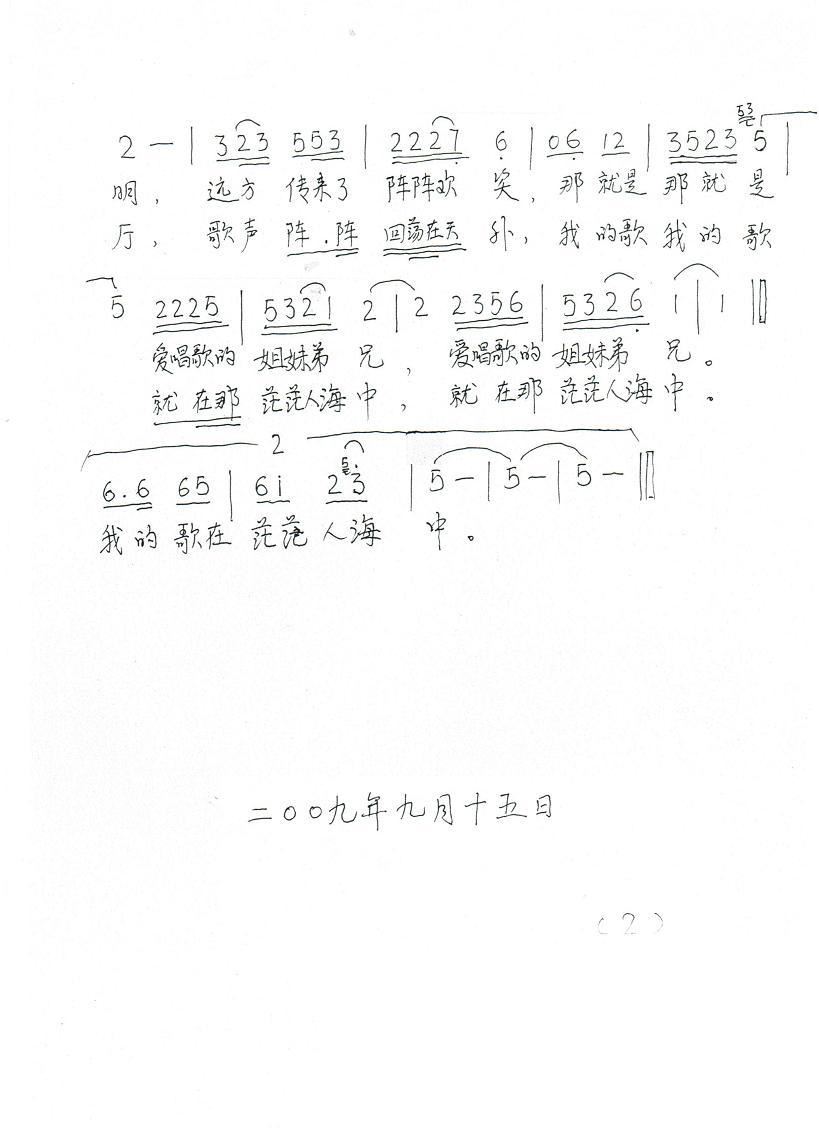 2 — | 3 2 3 5 5 3 | 2 2 2 7 6 | 0 6 1 2 | 3 5 2 3 5 |
明, 远方 传来了 阵阵欢 笑, 那 就是 那就 是
厅, 歌声 阵.阵 回荡在天 外, 我 的歌 我的 歌
5 2 2 2 5 | 5 3 2 1 2 | 2 2 3 5 6 | 5 3 2 6 1 | 1 ‖
爱唱歌的 姐妹弟 兄, 爱唱歌的 姐妹弟 兄。
就在那 茫茫人海中, 就在那 茫茫人海中。
2
6. 6 6 5 | 6 i 2 3 | 5 — | 5 — | 5 — ‖
我的歌在 茫茫 人海 中。
二〇〇九年九月十五日
(2)